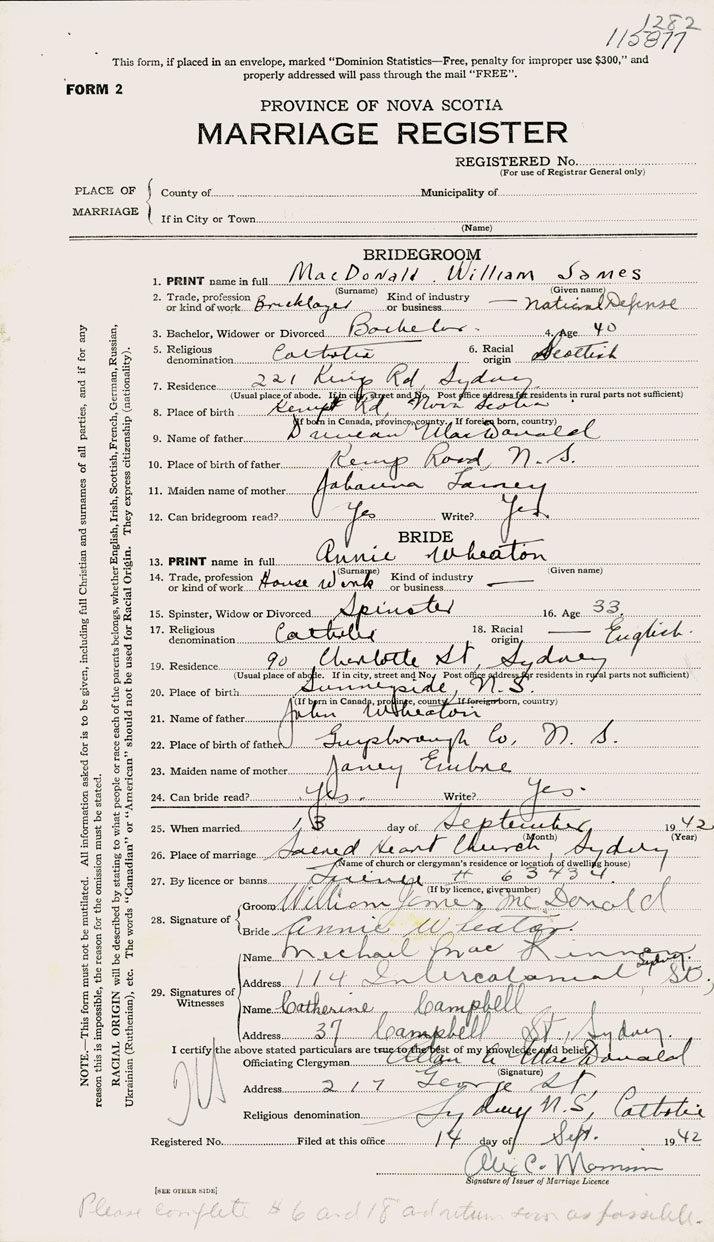 1282
115877
This form, if placed in an envelope, marked "Dominion Statistics—Free, penalty for improper use $300," and
properly addressed will pass through the mail "FREE".
FORM 2
PROVINCE OF NOVA SCOTIA
MARRIAGE REGISTER
REGISTERED No.
(For use of Registrar General only)
PLACE OF MARRIAGE
County of Municipality of
If in City or Town
(Name)
BRIDEGROOM
1. PRINT name in full MacDonald William James
(Surname) (Given name)
2. Trade, profession or kind of work Bricklayer Kind of industry or business — National Defense
3. Bachelor, Widower or Divorced Bachelor. 4. Age 40
5. Religious denomination Catholic 6. Racial origin Scottish
7. Residence 221 King Rd, Sydney
(Usual place of abode. If in city, street and No. Post office address for residents in rural parts not sufficient)
8. Place of birth Kempt Rd, Nova Scotia
(If born in Canada, province, county. If foreign born, country)
9. Name of father Duncan MacDonald
10. Place of birth of father Kemp Road, N. S.
11. Maiden name of mother Johanna
12. Can bridegroom read? Yes Write? Yes
BRIDE
13. PRINT name in full Annie Wheaton
(Surname) (Given name)
14. Trade, profession or kind of work House Work Kind of industry or business —
15. Spinster, Widow or Divorced Spinster 16. Age 33
17. Religious denomination Catholic 18. Racial origin — English.
19. Residence 90 Charlotte St, Sydney
(Usual place of abode. If in city, street and No. Post office address for residents in rural parts not sufficient)
20. Place of birth Sunnyside, N.S.
(If born in Canada, province, county. If foreign born, country)
21. Name of father John Wheaton
22. Place of birth of father Guysborough Co, N. S.
23. Maiden name of mother Janey Embree
24. Can bride read? Yes. Write? Yes.
25. When married 13 day of September 1942
(Month) (Year)
26. Place of marriage Sacred Heart Church, Sydney
(Name of church or clergyman's residence or location of dwelling house)
27. By licence or banns License # 63434
(If by licence, give number)
28. Signature of
Groom William James McDonald
Bride Annie Wheaton.
29. Signatures of Witnesses
Name Michael Mac Kinnon
Address 114 Intercolonial St, Sydney
Name Catherine Campbell
Address 37 Campbell St, Sydney.
I certify the above stated particulars are true to the best of my knowledge and belief.
Officiating Clergyman Allan A. MacDonald
(Signature)
Address 217 George St,
Religious denomination Sydney N.S, Catholic
Registered No. Filed at this office 14 day of Sept. 1942
Alex C. Morrison
Signature of Issuer of Marriage Licence
[SEE OTHER SIDE]
Please complete # 6 and 18 and return soon as possible.
NOTE.—This form must not be mutilated. All information asked for is to be given, including full Christian and surnames of all parties, and if for any
reason this is impossible, the reason for the omission must be stated.
RACIAL ORIGIN will be described by stating to what people or race each of the parents belongs, whether English, Irish, Scottish, French, German, Russian,
Ukrainian (Ruthenian), etc. The words "Canadian" or "American" should not be used for Racial Origin. They express citizenship (nationality).